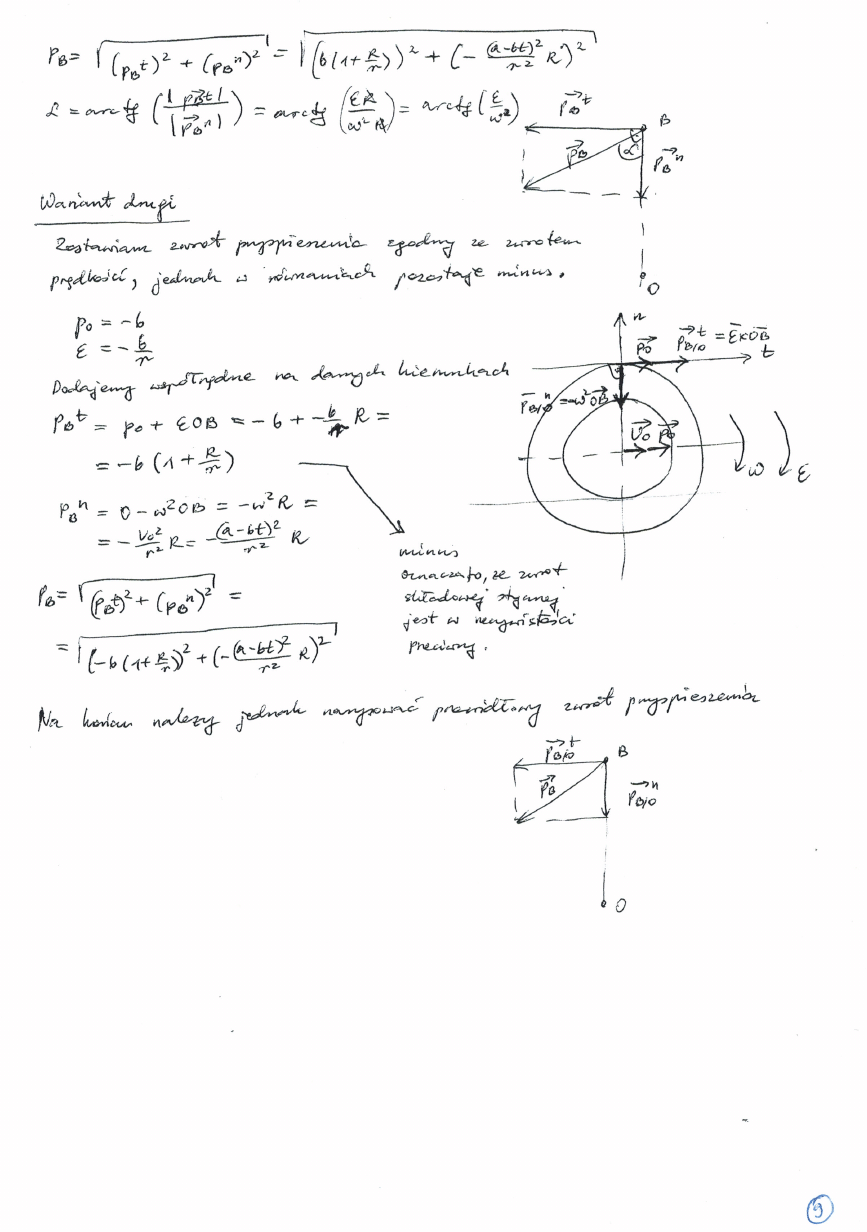 p_B = √((p_B^t)² + (p_B^n)²) = √((b(1+R/r))² + (-(a-bt)²/r² R)²)
α = arctg (|p_B^t|/|p_B^n|) = arctg (εR/ω²R) = arctg (ε/ω²)
p_B^t
B
p_B
α
p_B^n
O
Wariant drugi
Zostawiam zwrot przyspieszenia zgodny ze zwrotem
prędkości, jednak w równaniach pozostaje minus.
p_O = -b
ε = -b/r
n
p_O
p_B/O^t = ε×OB
t
Dodajemy współrzędne na danych kierunkach
p_B/O^n = -ω²OB
p_B^t = p_O + εOB = -b + -b/r R =
= -b (1 + R/r)
V_O p_O
ω
ε
p_B^n = 0 - ω²OB = -ω²R =
= -V_O²/r² R = -(a-bt)²/r² R
minus
oznacza to, że zwrot
składowej stycznej
jest w rzeczywistości
przeciwny.
p_B = √((p_B^t)² + (p_B^n)²) =
= √((-b(1+R/r))² + (-(a-bt)²/r² R)²)
Na końcu należy jednak narysować prawidłowy zwrot przyspieszenia
p_B/O^t
B
p_B
p_B/O^n
O
9